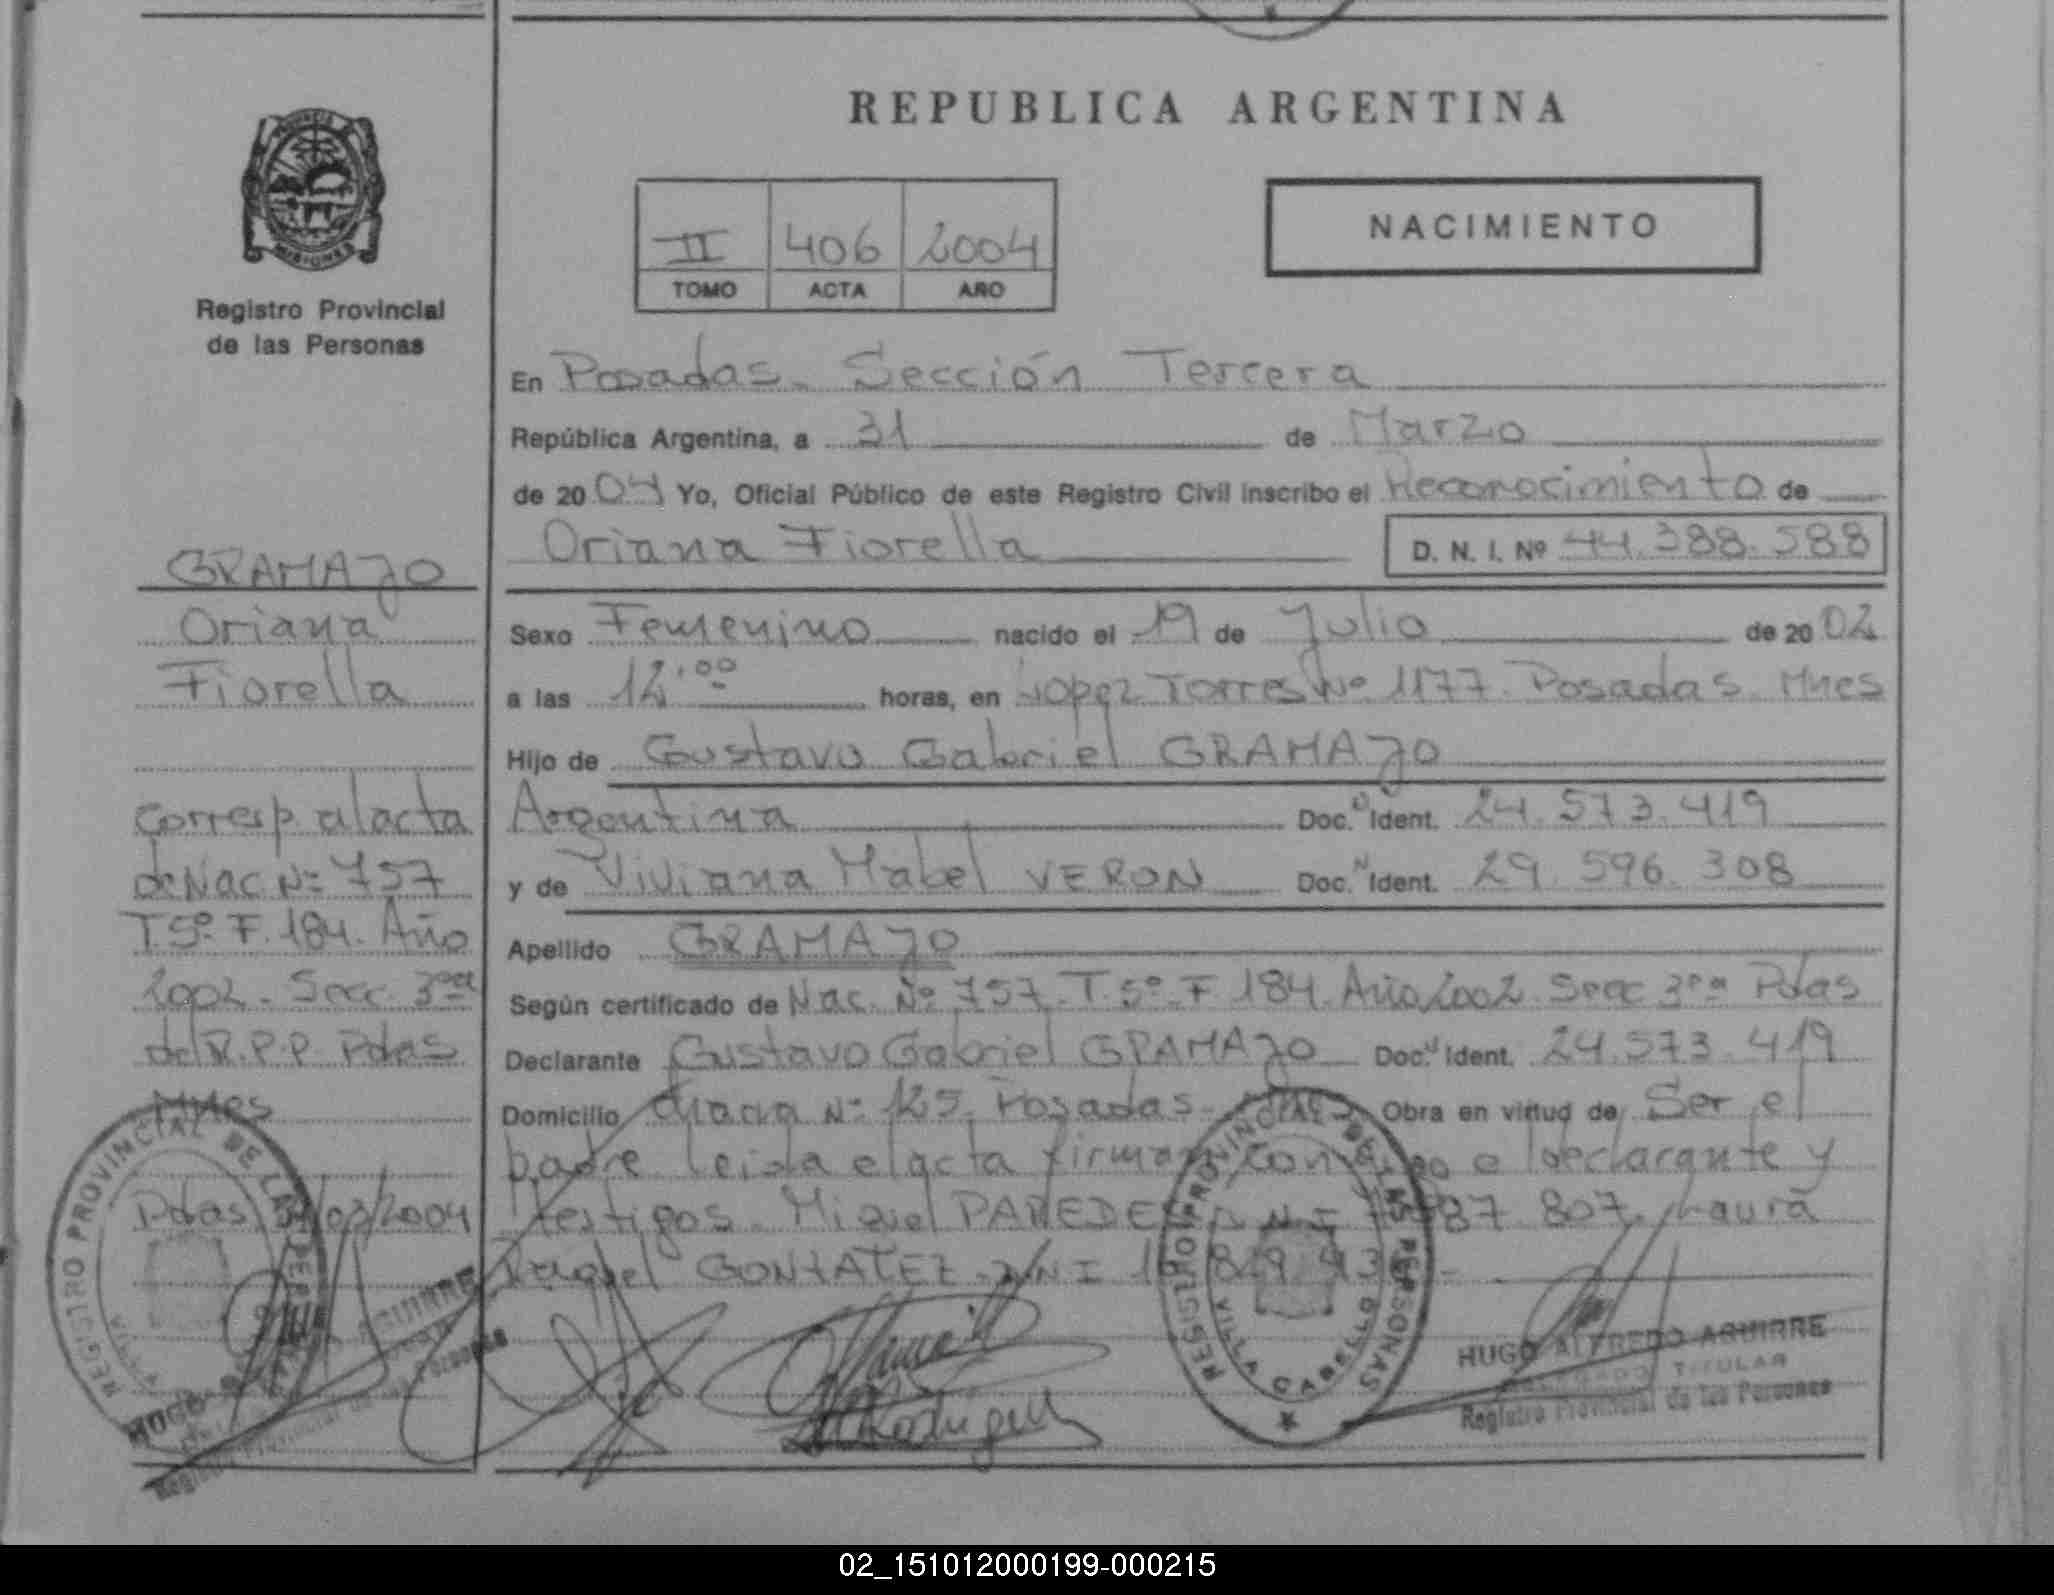 REPUBLICA ARGENTINA
PROVINCIA
MISIONES
Registro Provincial
de las Personas
II 406 2004
TOMO ACTA AÑO
NACIMIENTO
En Posadas. Sección Tercera
República Argentina, a 31 de Marzo
de 2004 Yo, Oficial Público de este Registro Civil inscribo el Reconocimiento de
Oriana Fiorella D. N. I. Nº 44.388.588
Sexo Femenino nacido el 19 de Julio de 2002
a las 12,00 horas, en Lopez Torres Nº 1177. Posadas. Mnes
Hijo de Gustavo Gabriel GRAMAJO
Argentina Doc. Ident. 24.573.419
y de Viviana Mabel VERON Doc. Ident. 29.596.308
Apellido GRAMAJO
Según certificado de Nac. Nº 757. T. 5º. F 184. Año 2002. Secc 3ra Pdas
Declarante Gustavo Gabriel GRAMAJO Doc. Ident. 24.573.419
Domicilio Nº 125. Posadas. Obra en virtud de Ser el
padre leida el acta firman conmigo el declarante y
testigos. Miguel PAREDES 807. Laura
Raquel GONZALEZ. DNI
GRAMAJO
Oriana
Fiorella
Corresp. al acta
de Nac. Nº 757
T. 5º. F. 184. Año
2002. Secc. 3ra
del R.P.P. Pdas
Mnes
Pdas 31/03/2004
REGISTRO PROVINCIAL DE LAS PERSONAS
VILLA
HUGO AGUIRRE
REGISTRO PROVINCIAL DE LAS PERSONAS
VILLA CABELLO
HUGO ALFREDO AGUIRRE
DELEGADO TITULAR
Registro Provincial de las Personas
02_151012000199-000215